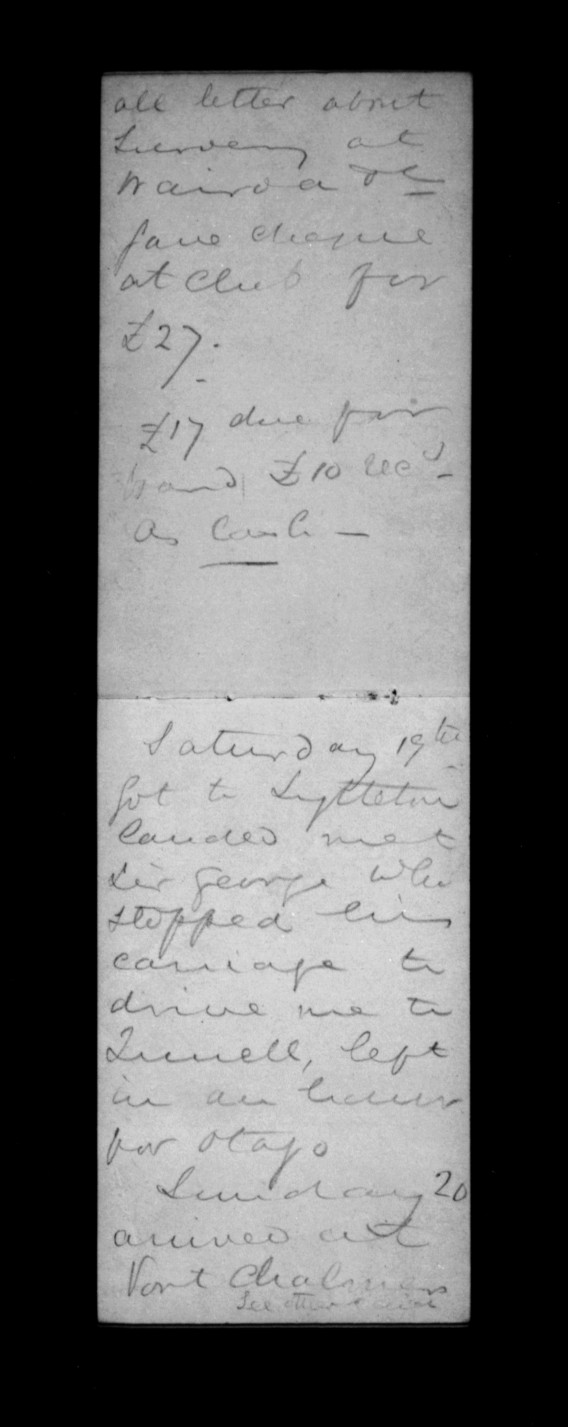 all letter about
Survey at
Wairoa &c
gave cheque
at Club for
£27.
£17 due for
£10 recd
as Cash —
Saturday 19th
Got to Lyttelton
landed met
Sir George who
stopped his
carriage to
drive me to
Tunnell, left
in an hour
for Otago
Sunday 20
arrived at
Port Chalmers
See other